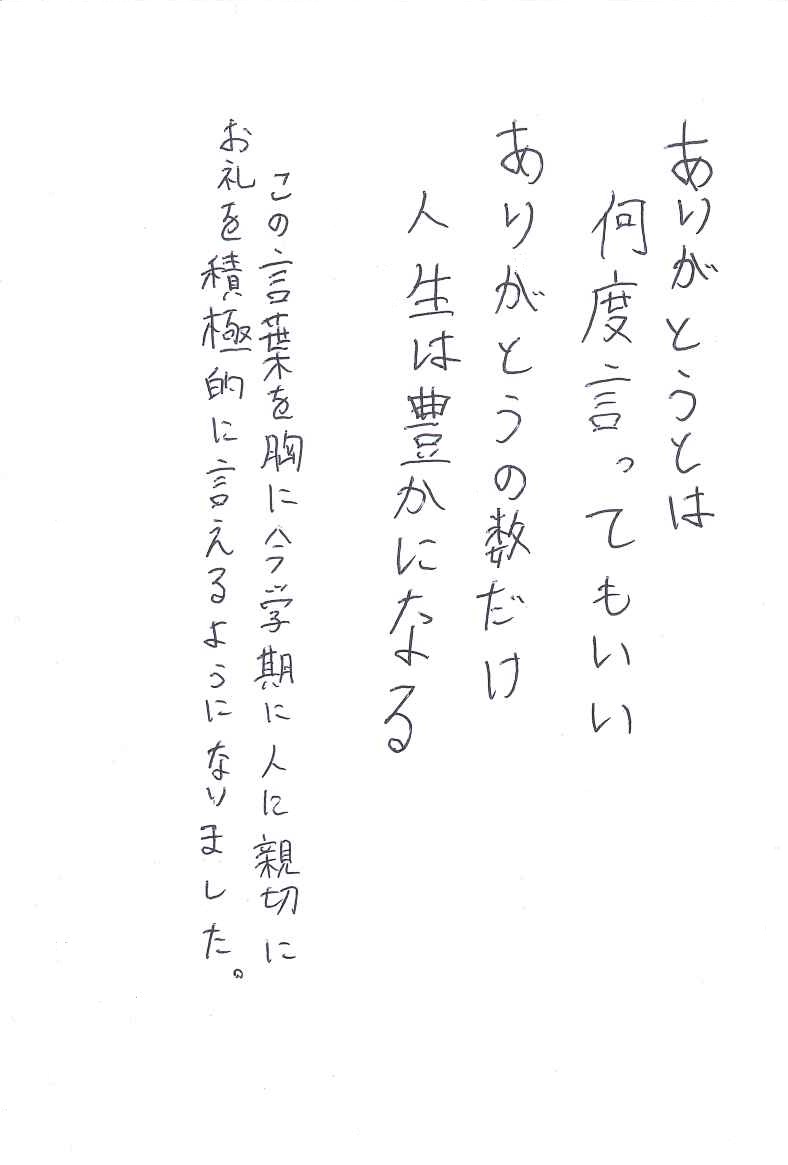 ありがとうとは
何度言ってもいい
ありがとうの数だけ
人生は豊かになる
この言葉を胸に今学期に人に親切に
お礼を積極的に言えるようになりました。